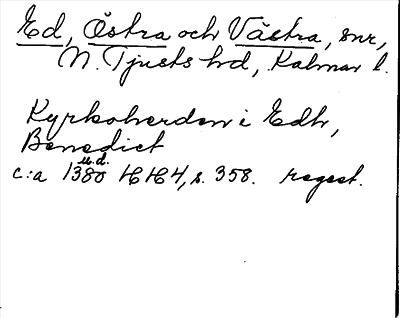 Ed, Östra och Västra, snr,
N. Tjusts hd, Kalmar l.
Kyrkoherden i Edh,
Benedict
u.d.
c:a 1380 HH4, s. 358. regest.